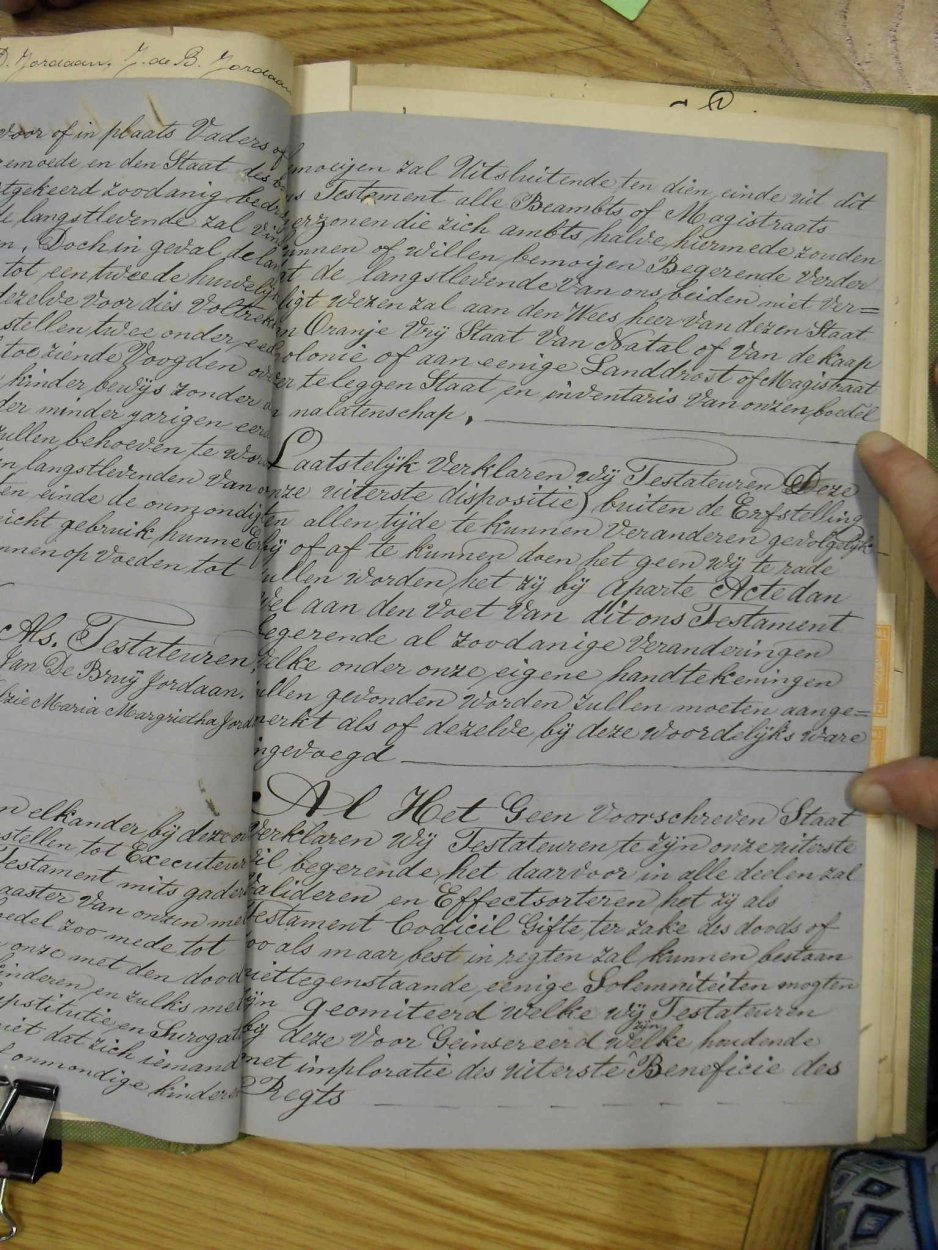 D. Jordaan, J. de B. Jordaan
voor of in plaats Vaders of
en den Staat des
zoodanig
langstlevende zal
Doch in geval de
tot een tweede
dezelve voor dies
stellen twee onder
toeziende Voogden
kinder bewijs zonder
minder jarigen
zullen behoeven te
langstlevenden Van
einde de onmondig
gebruik hunne
op voeden tot
Als. Testateuren,
Jan De Bruÿ Jordaan.
Maria Margrietha
elkander bij deze
stellen tot Executeur
Testament mits gader
Van onzen
boedel zoo mede tot
onze met den dood
kinderen en zulks
en Surogat
niet dat zich iemand
onmondige kinder
moeijen zal Uitsluitende ten dien einde uit dit
Testament alle Beambts of Magistraats
die zich ambts halve hiermede zouden
of willen bemoeijen Begerende Verder
de langstlevende Van ons beiden niet Ver=
wezen zal aan den Wees heer Van dezen Staat
Oranje Vrÿ Staat Van Natal of Van de Kaap
of aan eenige Landdrost of Magistraat
te leggen Staat en inventaris Van onzen boedel
nalatenschap,
Laatstelÿk Verklaren wÿ Testateuren (Deze
onze uiterste dispositie) buiten de Erfstelling
ten allen tÿde te kunnen Veranderen gevolgelÿk
bÿ of af te kunnen doen het geen wÿ te rade
zullen worden het zÿ bÿ Aparte Acte dan
wel aan den Voet Van dit ons Testament
begerende al zoodanige Veranderingen
welke onder onze eigene handtekeningen
zullen gevonden worden zullen moeten aange=
merkt als of dezelve bÿ deze woordelÿks ware
ingevoegd
Al Het Geen Voorschreven Staat
Verklaren wÿ Testateuren te zÿn onze uiterste
wil begerende het daarvoor in alle deelen zal
Valideren en Effectsorteren het zÿ als
Testament Codicil Gifte ter zake des doods of
zoo als maar best in regten zal kunnen bestaan
niettegenstaande eenige Solemniteiten mogten
zÿn geomiteerd welke wÿ Testateuren
bÿ deze Voor Geinsereerd welke houdende
zÿn
met imploratie des uiterste Beneficie des
Regts